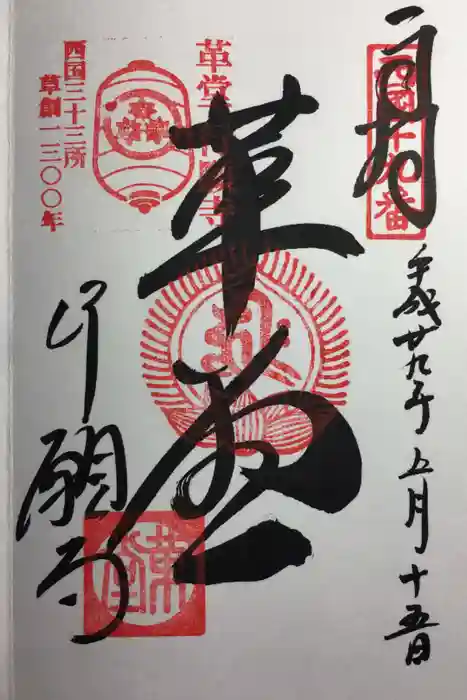 奉拝
西国十九番
平成廿九年五月十五日
革堂行願寺
革堂
西国三十三所
草創一三〇〇年
行願寺
革堂